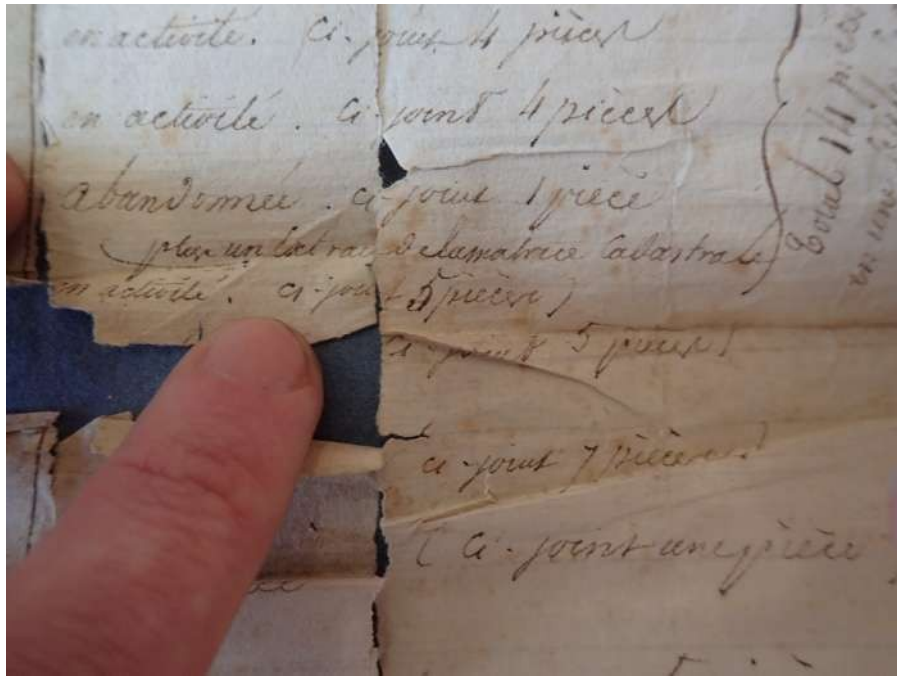 en activité. Ci-joint 4 pièces
en activité. Ci-joint 4 pièces
abandonnée. ci-joint 1 pièce
plus un Extrait de la matrice Cadastrale
en activité. ci-joint 5 pièces
ci-joint 5 pièces
ci-joint 7 pièces
Ci-joint une pièce
Total 14 pièces
en une